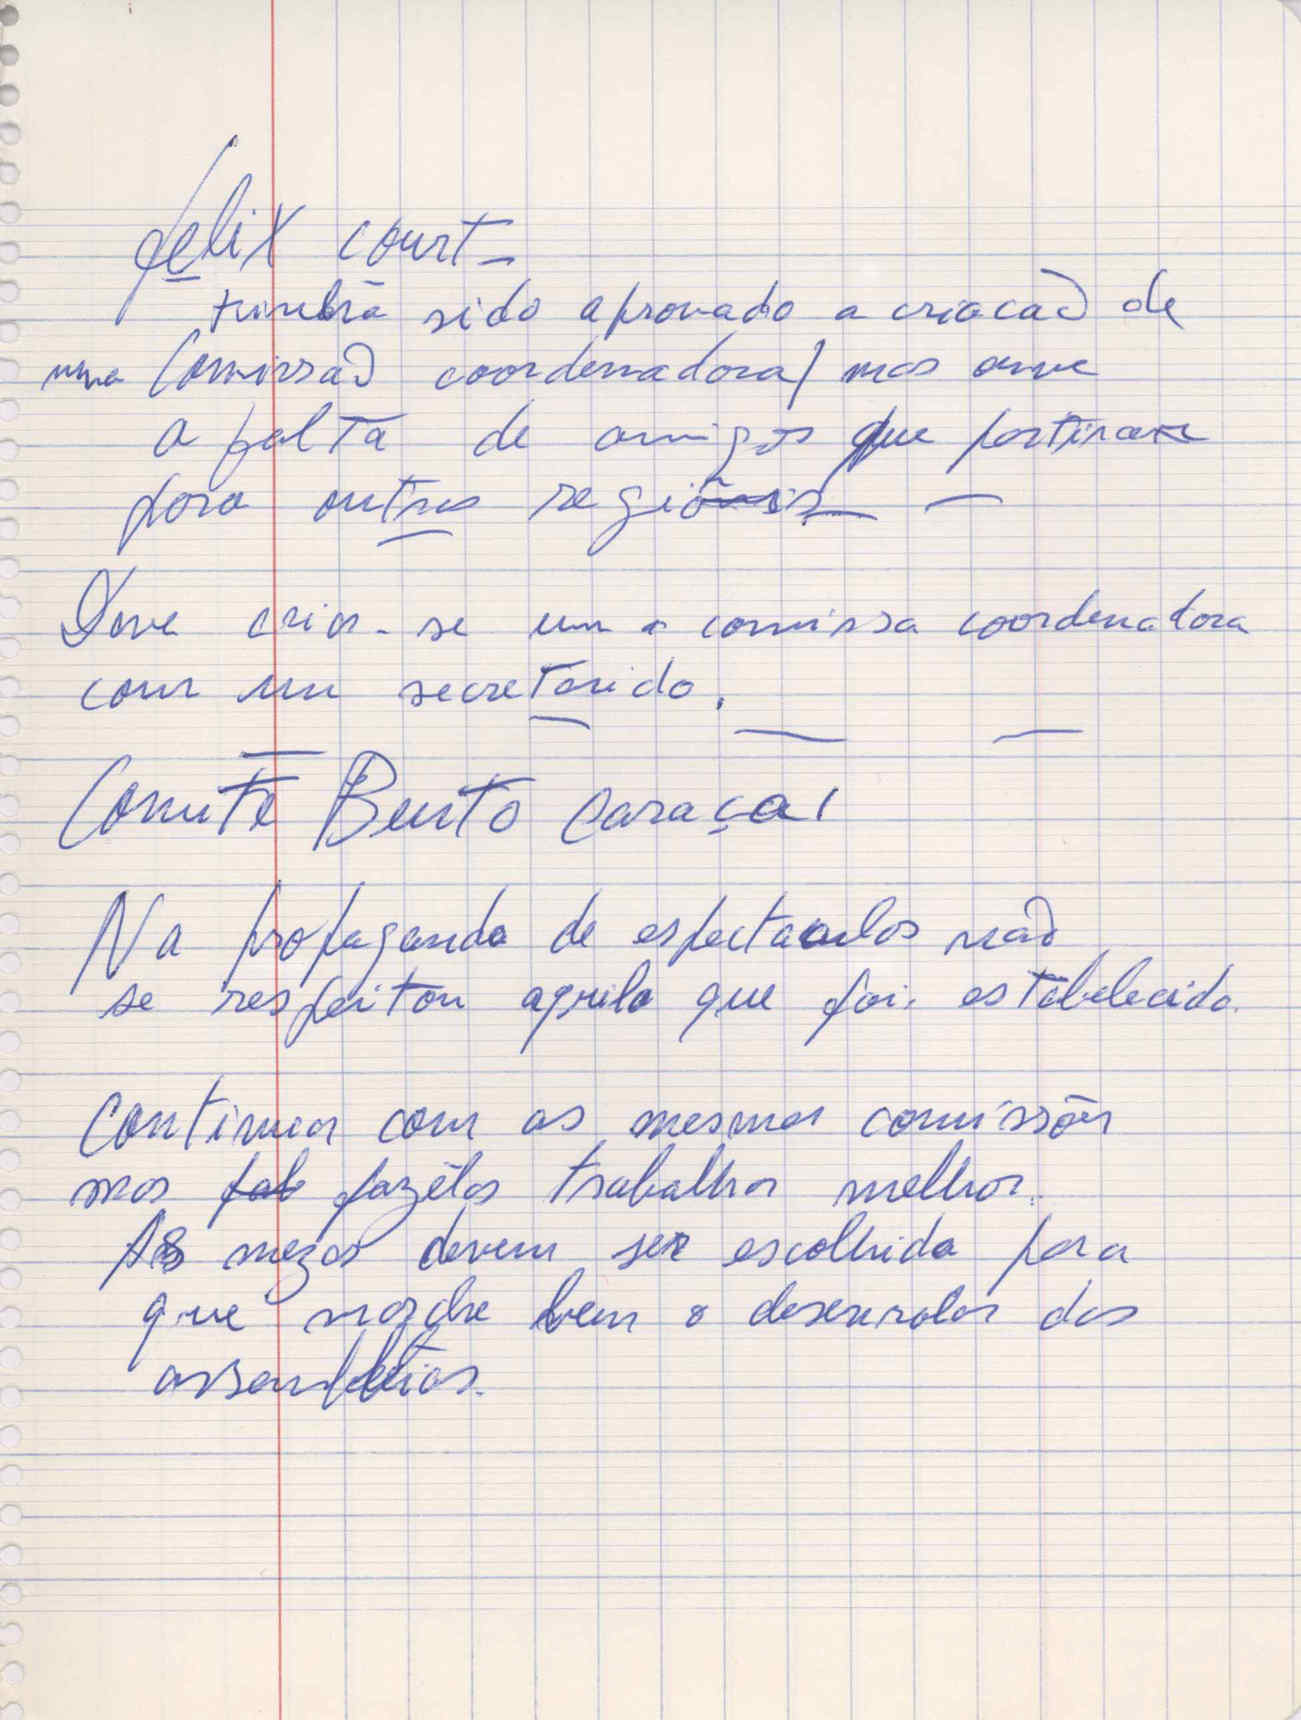 felix court –
tinha sido aprovado a criacaõ de
uma Comissaõ coordenadora/ mas ouve
a falta de amigos que partiram
para outras regiõis –
Deve criar-se uma comissa coordenadora
com um secretarido.
Comité Bento Caraça,
Na propaganda de espectaculos naõ
se respeitou aquilo que foi estabelecido.
Continuar com as mesmas comissões
mas fazêlas trabalhar melhor.
As mezas devem ser escolhida para
que marche bem o desenrolar das
assembleias.